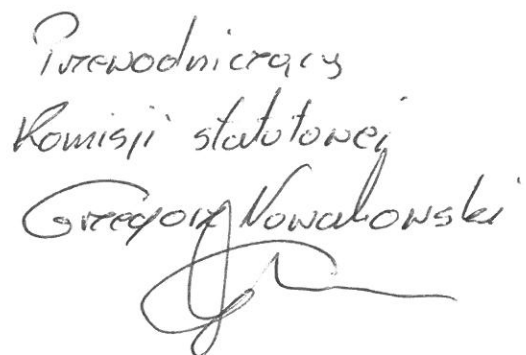 Przewodniczący
Komisji statutowej
Grzegorz Nowakowski